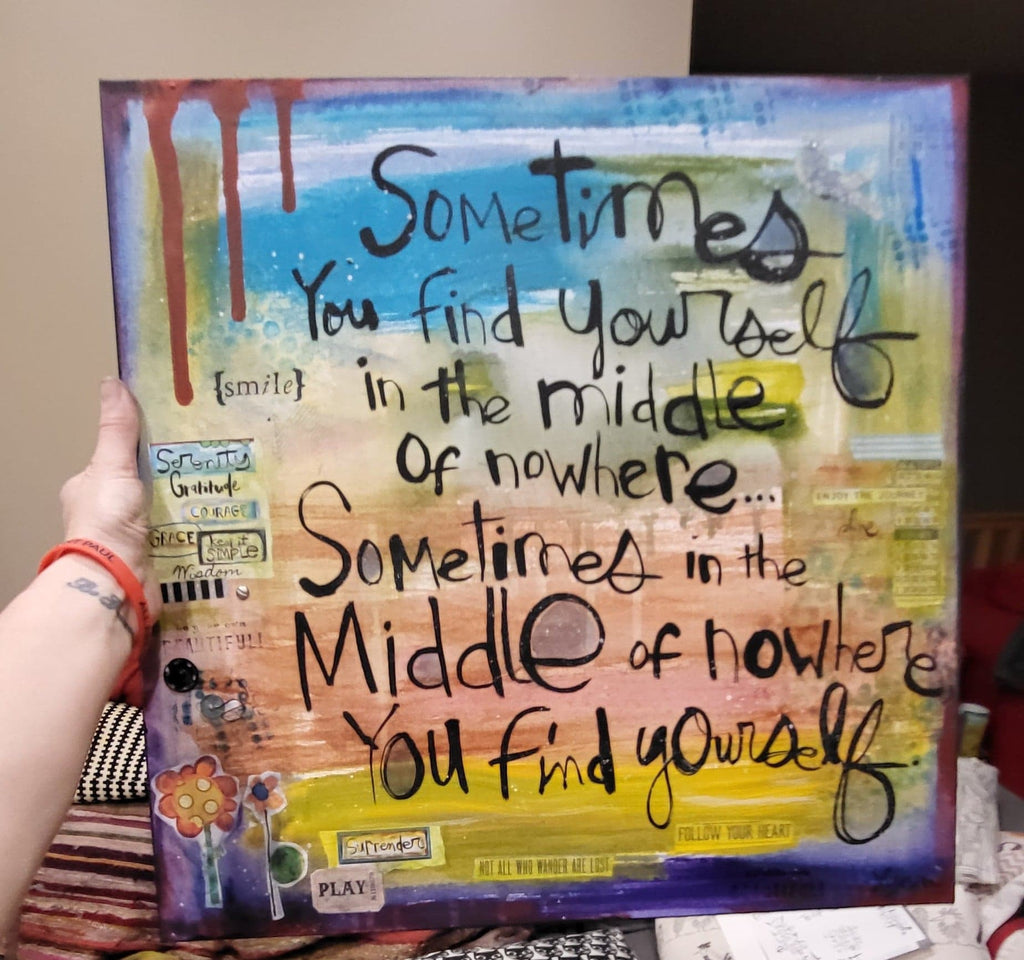 Sometimes
You find yourself
in the middle
Of nowhere...
Sometimes in the
Middle of nowhere
You find yourself.
{smile}
Serenity
Gratitude
COURAGE
GRACE
keep it
SIMPLE
Wisdom
BEAUTIFUL!
ENJOY THE JOURNEY
Surrender
PLAY
NOT ALL WHO WANDER ARE LOST
FOLLOW YOUR HEART